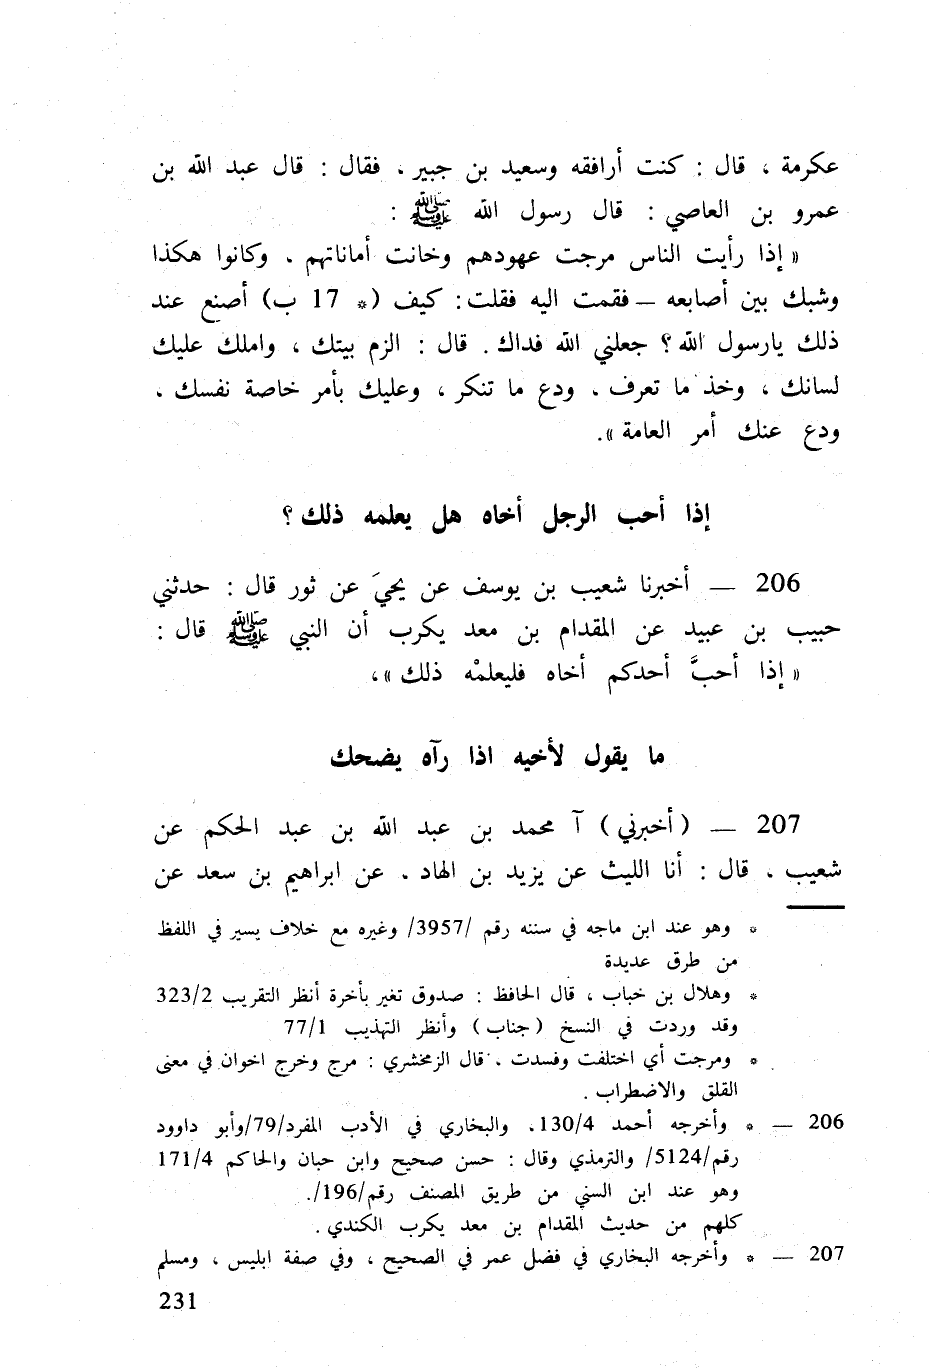 عكرمة ، قال : كنت أرافقه وسعيد بن جبير . فقال : قال عبد الله بن
عمرو بن العاصي : قال رسول الله ﷺ :
« إذا رأيت الناس مرجت عهودهم وخانت أماناتهم . وكانوا هكذا
وشبك بين أصابعه — فقمت اليه فقلت : كيف (* 17 ب) أصنع عند
ذلك يارسول الله ؟ جعلني الله فداك . قال : الزم بيتك ، واملك عليك
لسانك ، وخذ ما تعرف . ودع ما تنكر ، وعليك بأمر خاصة نفسك .
ودع عنك أمر العامة ».
إذا أحب الرجل أخاه هل يعلمه ذلك ؟
206 — أخبرنا شعيب بن يوسف عن يحيَ عن ثور قال : حدثني
حبيب بن عبيد عن المقدام بن معد يكرب أن النبي ﷺ قال :
« إذا أحبَّ أحدكم أخاه فليعلمْه ذلك »،
ما يقول لأخيه اذا رآه يضحك
207 — ( أخبرني ) آ محمد بن عبد الله بن عبد الحكم عن
شعيب . قال : أنا الليث عن يزيد بن الهاد . عن ابراهيم بن سعد عن
* وهو عند ابن ماجه في سننه رقم /3957/ وغيره مع خلاف يسير في اللفظ
من طرق عديدة
* وهلال بن خباب ، قال الحافظ : صدوق تغير بأخرة أنظر التقريب 323/2
وقد وردت في النسخ ( جناب ) وأنظر التهذيب 77/1
* ومرجت أي اختلفت وفسدت . قال الزمخشري : مرج وخرج اخوان في معنى
القلق والاضطراب .
206 — * وأخرجه أحمد 130/4. والبخاري في الأدب المفرد/79/وأبو داوود
رقم/5124/ والترمذي وقال : حسن صحيح وابن حبان والحاكم 171/4
وهو عند ابن السني من طريق المصنف رقم/196/.
كلهم من حديث المقدام بن معد يكرب الكندي .
207 — * وأخرجه البخاري في فضل عمر في الصحيح ، وفي صفة ابليس ، ومسلم
231